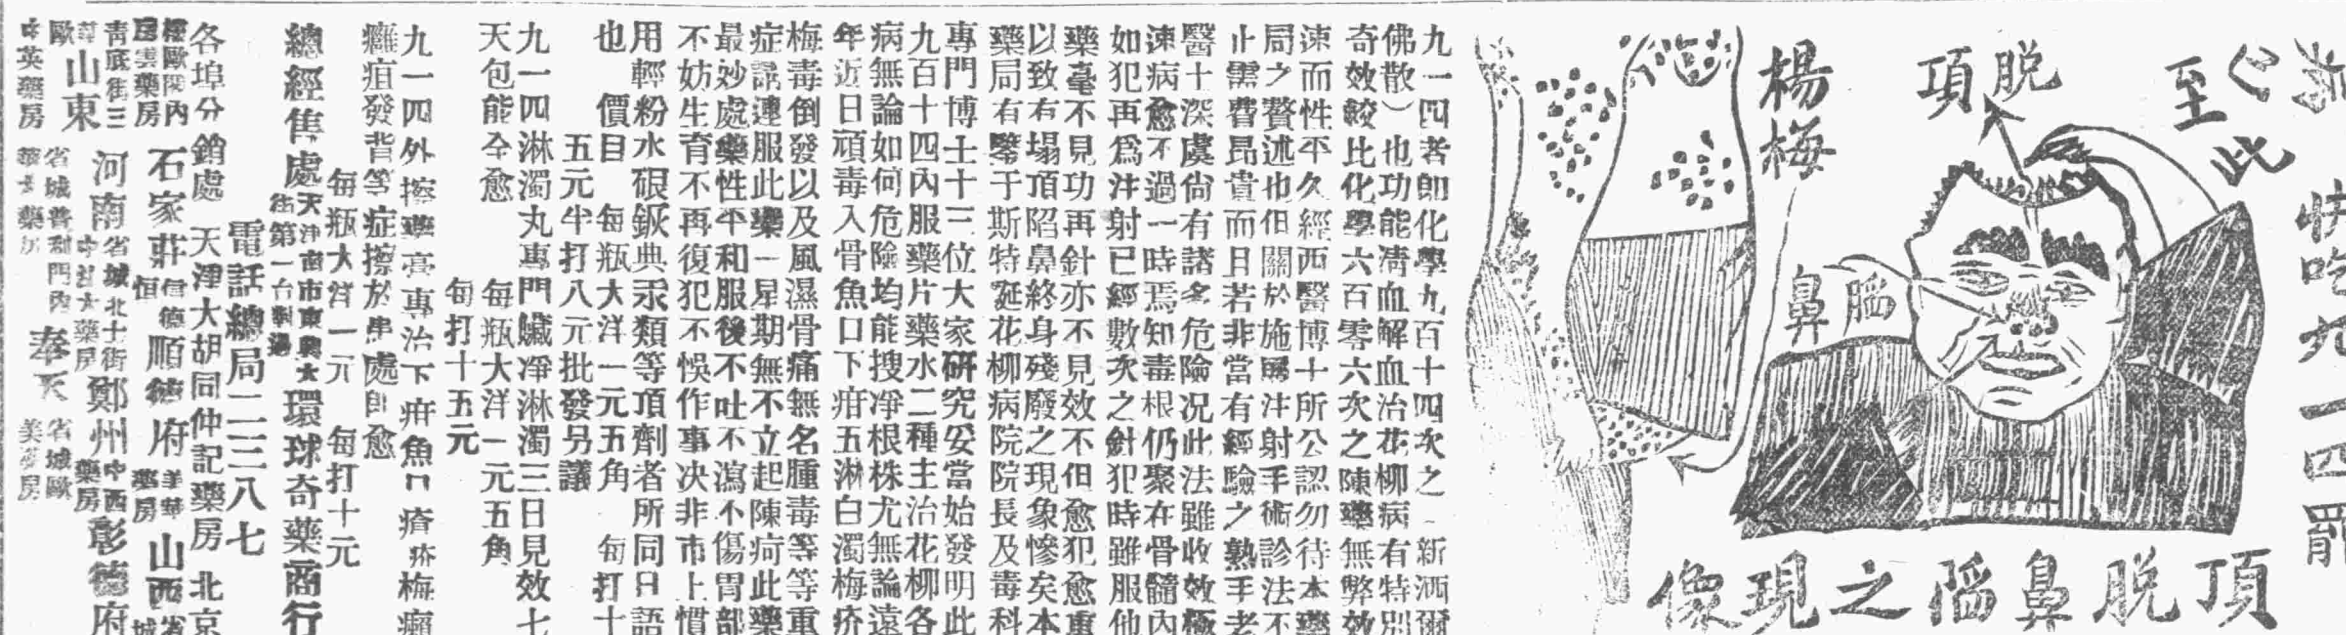 至此
快吃九一四罷
脱項
楊梅
鼻䐉
頂脱鼻䐉之現像
九一四者即化學九百十四次之（新洒爾
佛散）也功能清血解血治花柳病有特別
奇效較比化學六百零六次之陳藥無弊效
速而性平久經西醫博士所公認勿待本藥
局之贅述也但關於施屬注射手術診法不
止需費昂貴而且若非當有經驗之熟手老
醫士深虞尙有諸多危險况此法雖收效極
速病愈不過一時焉知毒根仍聚在骨髓內
如犯再爲注射已經數次之針犯時雖服他
藥毫不見功再針亦不見效不但愈犯愈重
以致有塌頂陷鼻終身殘廢之現象慘矣本
藥局有鑒于斯特延花柳病院院長及毒科
專門博士十三位大家研究妥當始發明此
九百十四內服藥片藥水二種主治花柳各
病無論如何危險均能搜凈根株尤無論遠
年近日頑毒入骨魚口下疳五淋白濁梅疥
梅毒倒發以及風濕骨痛無名腫毒等等重
症請連服此藥一星期無不立起陳疴此藥
最妙處藥性平和服後不吐不瀉不傷胃部
不妨生育不再復犯不悞作事决非市上慣
用輕粉水硍鈱典汞類等項劑者所同日語
也　價目　每瓶大洋一元五角　每打十
五元半打八元批發另議
九一四淋濁丸專門驖凈淋濁三日見效七
天包能全愈　每瓶大洋一元五角
每打十五元
九一四外擦藥膏專治下疳魚口瘡疥梅癩
癰疽發背等症擦於患處卽愈
每瓶大洋一元　每打十元
總經售處天津南市東興大街第一台對過環球奇藥商行
電話總局二二三八七
各埠分銷處　天津大胡同仲記藥房　北京
石家莊　順德府　山西省城
山東　河南省城北土街　鄭州中西藥房　彰德府
中英藥房　奉天